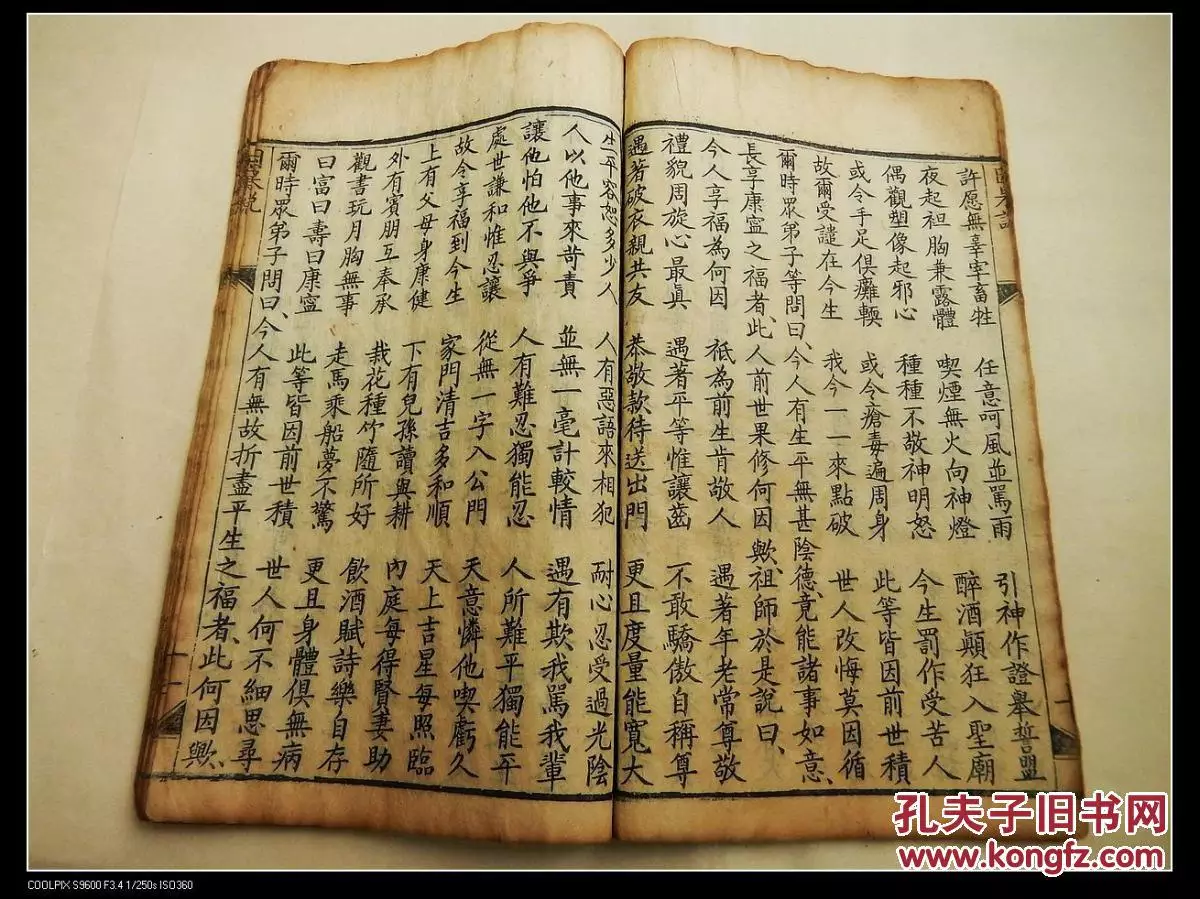 因果説
許愿無辜宰畜牲 任意呵風並罵雨 引神作證舉誓盟
夜起袒胸兼露體 喫煙無火向神燈 醉酒顛狂入聖廟
偶觀塑像起邪心 種種不敬神明怒 今生罰作受苦人
或令手足俱癱輭 或令瘡毒遍周身 此等皆因前世積
故爾受譴在今生 我今一一來點破 世人改悔莫因循
爾時眾弟子等問曰、今人有生平無甚陰德、竟能諸事如意、
長享康寧之福者、此人前世果修何因歟、祖師於是說曰、
今人享福為何因 祗為前生肯敬人 遇著年老常尊敬
禮貌周旋心最眞 遇著平等惟讓齒 不敢驕傲自稱尊
遇著破衣親共友 恭敬款待送出門 更且度量能寬大
生平容恕多少人 人有惡語來相犯 耐心忍受過光陰
人以他事來苛責 並無一毫計較情 遇有欺我罵我輩
讓他怕他不與爭 人有難忍獨能忍 人所難平獨能平
處世謙和惟忍讓 從無一字入公門 天意憐他喫虧久
故令享福到今生 家門清吉多和順 天上吉星每照臨
上有父母身康健 下有兒孫讀與耕 內庭每得賢妻助
外有賓朋互奉承 栽花種竹隨所好 飲酒賦詩樂自存
觀書玩月胸無事 走馬乘船夢不驚 更且身體俱無病
曰富曰壽曰康寧 此等皆因前世積 世人何不細思尋
爾時眾弟子問曰、今人有無故折盡平生之福者、此何因歟、
十一
孔夫子旧书网
www.kongfz.com
COOLPIX S9600 F3.4 1/250s ISO360